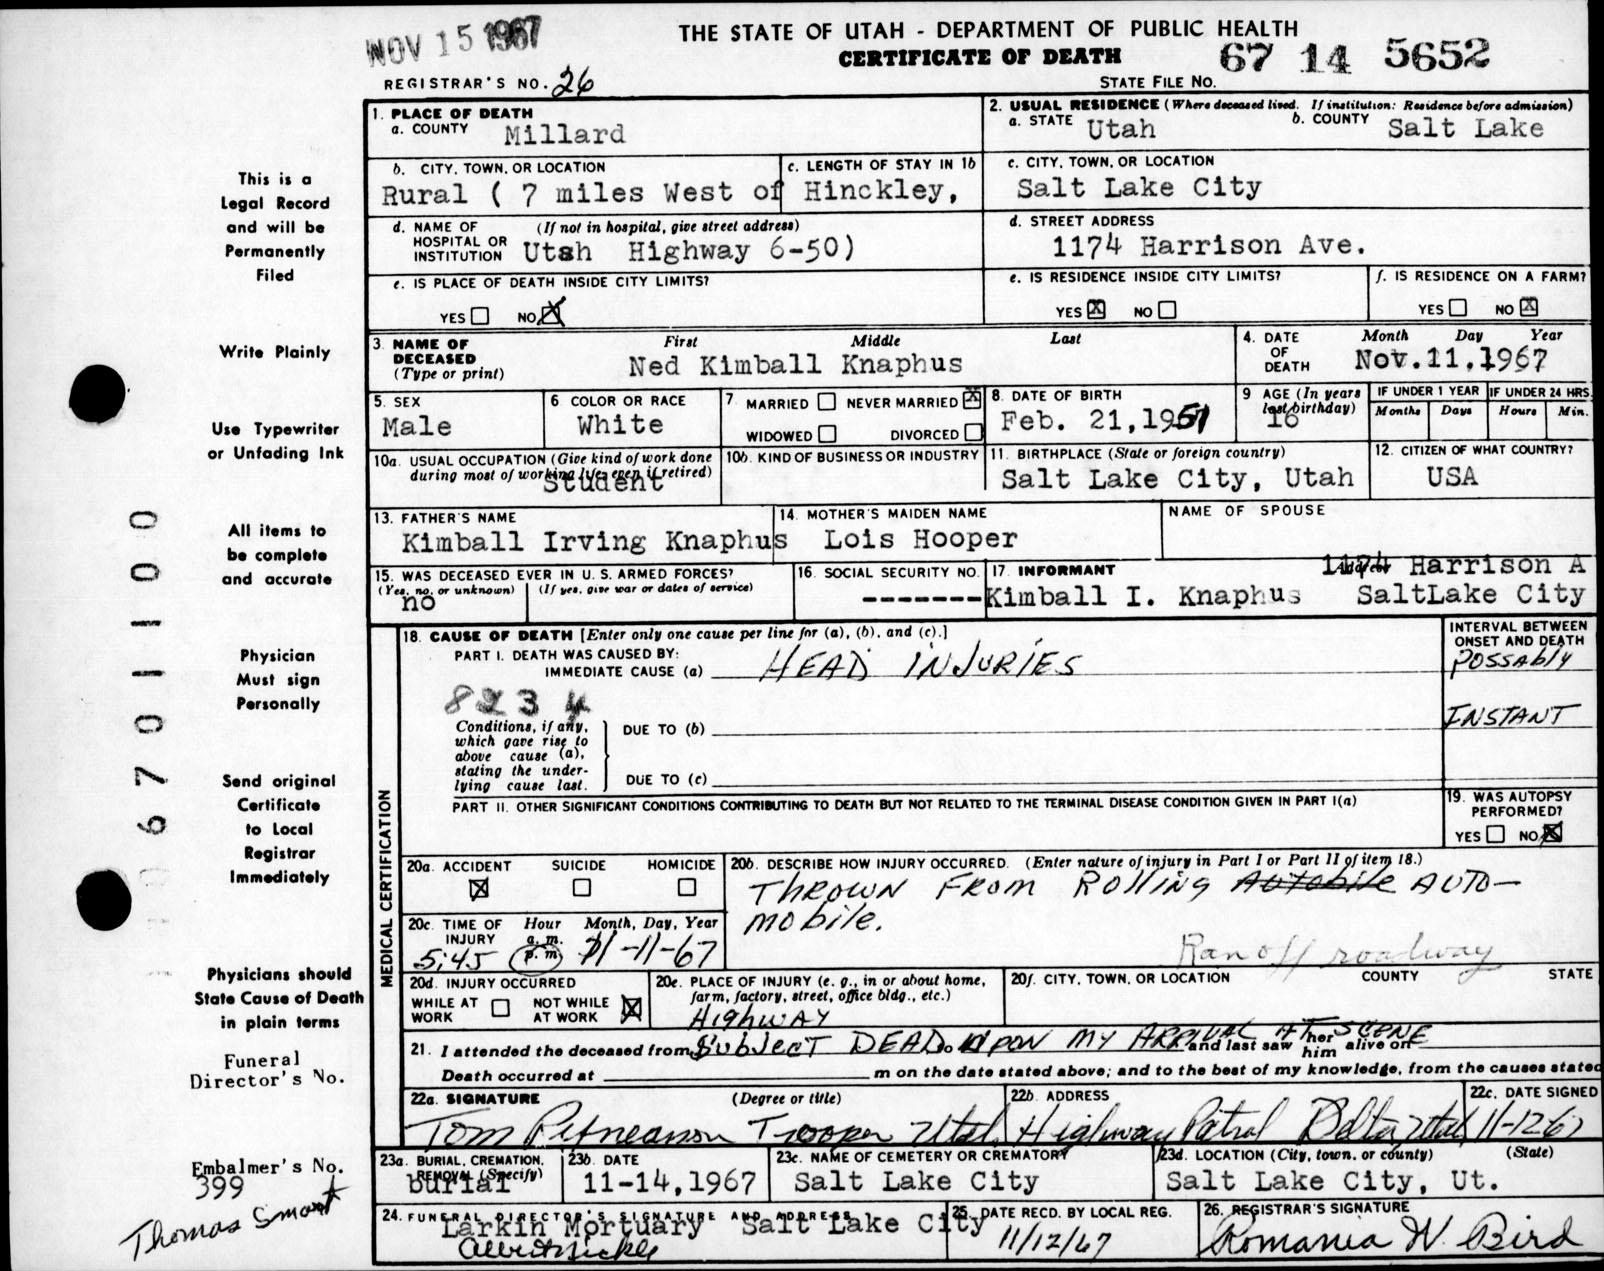 NOV 15 1967
THE STATE OF UTAH - DEPARTMENT OF PUBLIC HEALTH
CERTIFICATE OF DEATH
67 14 5652
REGISTRAR'S NO. 26
STATE FILE NO.
This is a
Legal Record
and will be
Permanently
Filed
Write Plainly
Use Typewriter
or Unfading Ink
All items to
be complete
and accurate
Physician
Must sign
Personally
Send original
Certificate
to Local
Registrar
Immediately
Physicians should
State Cause of Death
in plain terms
Funeral
Director's No.
Embalmer's No.
399
Thomas Smart
1. PLACE OF DEATH
a. COUNTY Millard
2. USUAL RESIDENCE (Where deceased lived. If institution: Residence before admission)
a. STATE Utah b. COUNTY Salt Lake
b. CITY, TOWN, OR LOCATION c. LENGTH OF STAY IN 1b
Rural ( 7 miles West of Hinckley,
c. CITY, TOWN, OR LOCATION
Salt Lake City
d. NAME OF HOSPITAL OR INSTITUTION (If not in hospital, give street address)
Utah Highway 6-50)
d. STREET ADDRESS
1174 Harrison Ave.
e. IS PLACE OF DEATH INSIDE CITY LIMITS?
YES NO X
e. IS RESIDENCE INSIDE CITY LIMITS?
YES X NO
f. IS RESIDENCE ON A FARM?
YES NO X
3. NAME OF DECEASED (Type or print) First Middle Last
Ned Kimball Knaphus
4. DATE OF DEATH Month Day Year
Nov. 11, 1967
5. SEX
Male
6 COLOR OR RACE
White
7. MARRIED NEVER MARRIED X
WIDOWED DIVORCED
8. DATE OF BIRTH
Feb. 21, 1951
9 AGE (In years last birthday)
16
IF UNDER 1 YEAR IF UNDER 24 HRS.
Months Days Hours Min.
10a. USUAL OCCUPATION (Give kind of work done during most of working life, even if retired)
Student
10b. KIND OF BUSINESS OR INDUSTRY
11. BIRTHPLACE (State or foreign country)
Salt Lake City, Utah
12. CITIZEN OF WHAT COUNTRY?
USA
13. FATHER'S NAME
Kimball Irving Knaphus
14. MOTHER'S MAIDEN NAME
Lois Hooper
NAME OF SPOUSE
15. WAS DECEASED EVER IN U. S. ARMED FORCES?
(Yes, no, or unknown) (If yes, give war or dates of service)
no
16. SOCIAL SECURITY NO.
-------
17. INFORMANT Address
1174 Harrison A
Kimball I. Knaphus SaltLake City
MEDICAL CERTIFICATION
18. CAUSE OF DEATH [Enter only one cause per line for (a), (b), and (c).]
PART I. DEATH WAS CAUSED BY:
IMMEDIATE CAUSE (a) HEAD INJURIES
INTERVAL BETWEEN ONSET AND DEATH
POSSABLY
INSTANT
Conditions, if any, which gave rise to above cause (a), stating the underlying cause last.
DUE TO (b)
DUE TO (c)
PART II. OTHER SIGNIFICANT CONDITIONS CONTRIBUTING TO DEATH BUT NOT RELATED TO THE TERMINAL DISEASE CONDITION GIVEN IN PART I(a)
19. WAS AUTOPSY PERFORMED?
YES NO X
20a. ACCIDENT SUICIDE HOMICIDE
X
20b. DESCRIBE HOW INJURY OCCURRED. (Enter nature of injury in Part I or Part II of item 18.)
THROWN FROM ROLLING AUTOBILE AUTO-
MOBILE.
Ran off roadway
20c. TIME OF INJURY Hour a. m. p. m. Month, Day, Year
5:45 11-11-67
20d. INJURY OCCURRED
WHILE AT WORK NOT WHILE AT WORK X
20e. PLACE OF INJURY (e. g., in or about home, farm, factory, street, office bldg., etc.)
HIGHWAY
20f. CITY, TOWN, OR LOCATION COUNTY STATE
21. I attended the deceased from and last saw her him alive on
SUBJECT DEAD UPON MY ARRIVAL AT SCENE
Death occurred at m on the date stated above; and to the best of my knowledge, from the causes stated
22a. SIGNATURE (Degree or title)
Tom Trooper Utah
22b. ADDRESS
Highway Patrol Delta, Utah
22c. DATE SIGNED
11-12-67
23a. BURIAL, CREMATION, REMOVAL (Specify)
burial
23b. DATE
11-14,1967
23c. NAME OF CEMETERY OR CREMATORY
Salt Lake City
23d. LOCATION (City, town, or county) (State)
Salt Lake City, Ut.
24. FUNERAL DIRECTOR'S SIGNATURE AND ADDRESS
Larkin Mortuary Salt Lake City
25. DATE RECD. BY LOCAL REG.
11/12/67
26. REGISTRAR'S SIGNATURE
Romania W. Bird